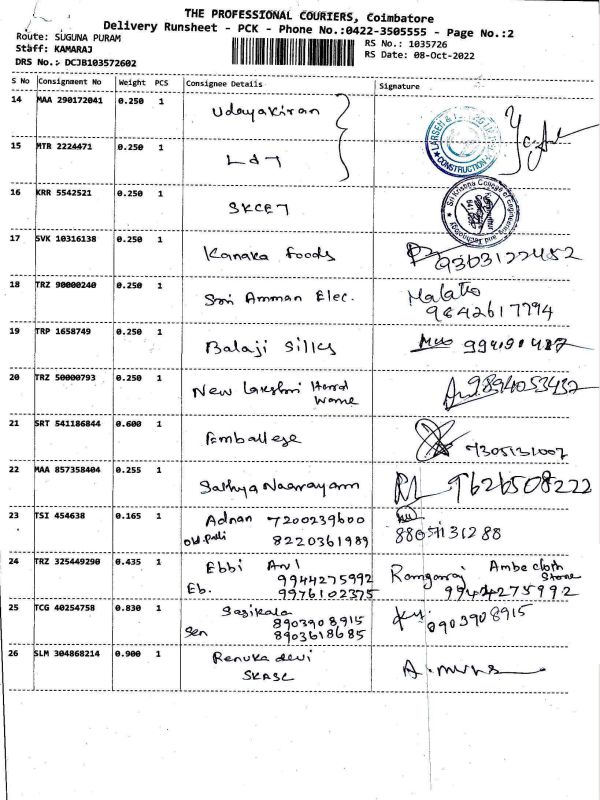 THE PROFESSIONAL COURIERS, Coimbatore
Delivery Runsheet - PCK - Phone No.:0422-3505555 - Page No.:2
Route: SUGUNA PURAM
RS No.: 1035726
Staff: KAMARAJ
RS Date: 08-Oct-2022
DRS No.: DCJB103572602
S No Consignment No Weight PCS Consignee Details Signature
14 MAA 290172041 0.250 1 Udayakiran
15 MTR 2224471 0.250 1 L&T
LARSEN & CONSTRUCTION
16 KRR 5542521 0.250 1 SKCET
Sri Krishna College of Engineering and Technology
17 SVK 10316138 0.250 1 Kanaka foods 9363122452
18 TRZ 90000240 0.250 1 Sri Amman Elec. Malathi
9842617794
19 TRP 1658749 0.250 1 Balaji Silks
20 TRZ 50000793 0.250 1 New Lakshmi 9894053432
21 SRT 541186844 0.600 1 Emballege 7305131007
22 MAA 857358404 0.255 1 Sathya Naarayam 9626508222
23 TSI 454638 0.165 1 Adnan 7200239600
8220361989
24 TRZ 325449290 0.435 1 Ebbi Arl Ambe cloth Store
9944275992 9944275992
Eb. 9976102375
25 TCG 40254758 0.830 1 Sasikala
8903908915 8903908915
Sen 8903618685
26 SLM 304868214 0.900 1 Renuka devi
SKASC